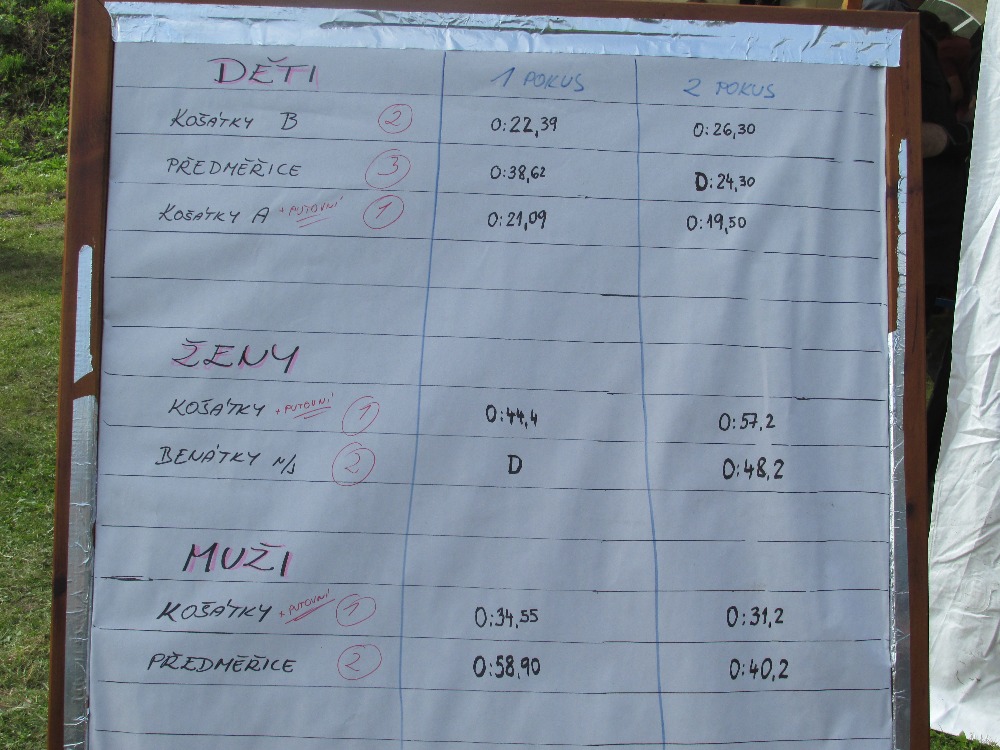 DĚTI 1 POKUS 2 POKUS
KOŠÁTKY B 2 0:22,39 0:26,30
PŘEDMĚŘICE 3 0:38,62 D:24,30
KOŠÁTKY A + PUTOVNÍ 1 0:21,09 0:19,50
ŽENY
KOŠÁTKY + PUTOVNÍ 1 0:44,4 0:57,2
BENÁTKY N/J 2 D 0:48,2
MUŽI
KOŠÁTKY + PUTOVNÍ 1 0:34,55 0:31,2
PŘEDMĚŘICE 2 0:58,90 0:40,2